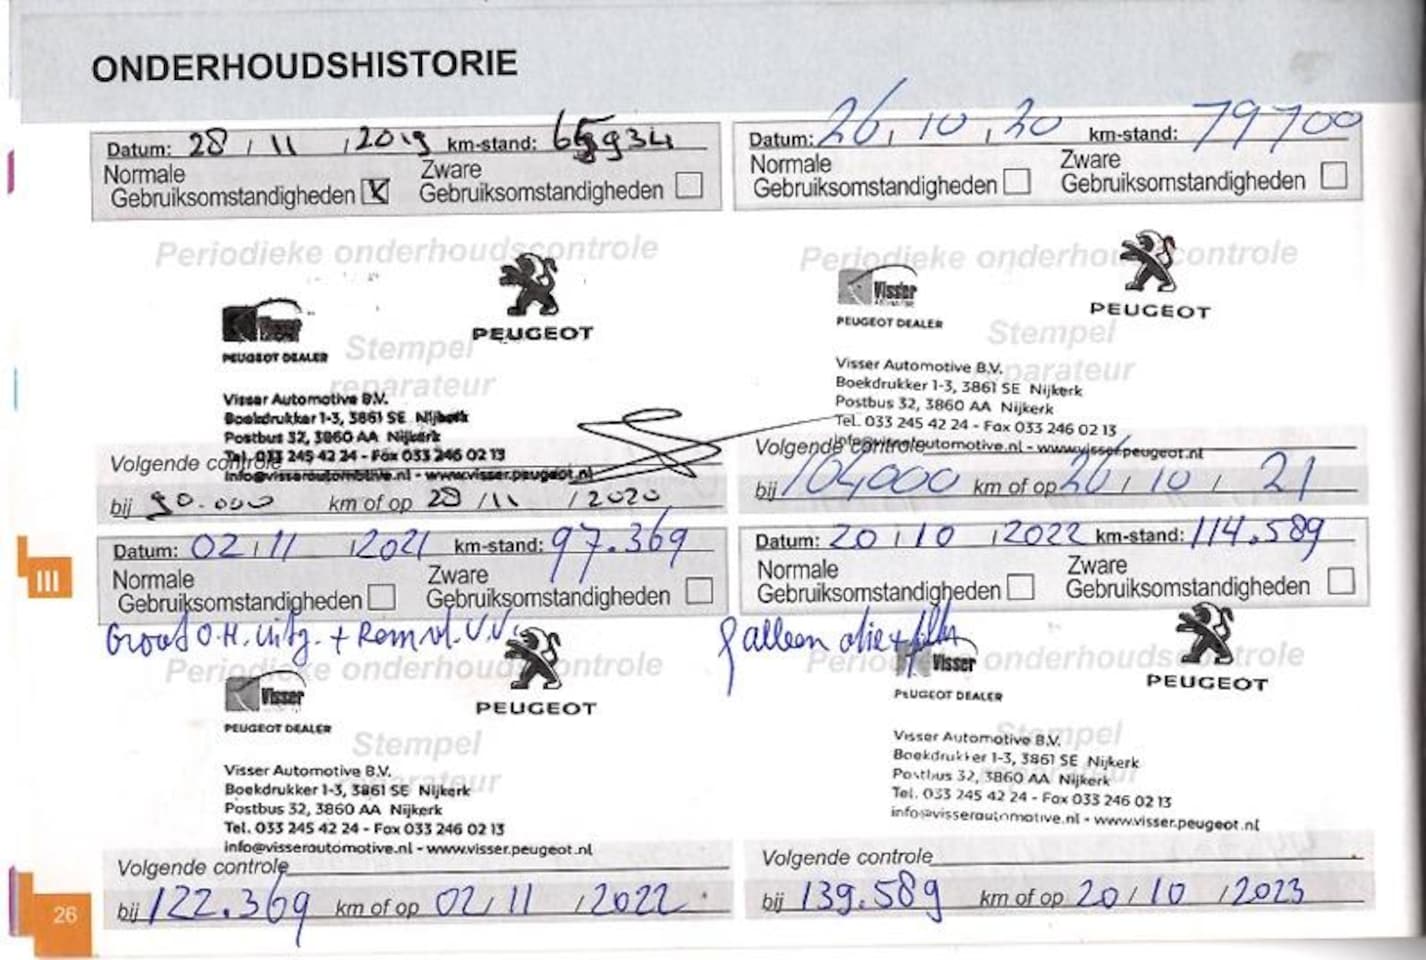 ONDERHOUDSHISTORIE
Datum: 28 / 11 / 2019 km-stand: 65934
Normale Zware
Gebruiksomstandigheden X Gebruiksomstandigheden
Periodieke onderhoudscontrole
Visser
PEUGEOT DEALER
PEUGEOT
Stempel
reparateur
Visser Automotive B.V.
Boekdrukker 1-3, 3861 SE Nijkerk
Postbus 32, 3860 AA Nijkerk
Tel. 033 245 42 24 - Fax 033 246 02 13
info@visserautomotive.nl - www.visser.peugeot.nl
Volgende controle
bij 90.000 km of op 28 / 11 / 2020
Datum: 26 / 10 / 20 km-stand: 79700
Normale Zware
Gebruiksomstandigheden Gebruiksomstandigheden
Periodieke onderhoudscontrole
Visser
PEUGEOT DEALER
PEUGEOT
Stempel
reparateur
Visser Automotive B.V.
Boekdrukker 1-3, 3861 SE Nijkerk
Postbus 32, 3860 AA Nijkerk
Tel. 033 245 42 24 - Fax 033 246 02 13
info@visserautomotive.nl - www.visser.peugeot.nl
Volgende controle
bij 104000 km of op 26 / 10 / 21
Datum: 02 / 11 / 2021 km-stand: 97.369
Normale Zware
Gebruiksomstandigheden Gebruiksomstandigheden
Groot O.H. uitg. + Remvl. V.V.
Periodieke onderhoudscontrole
Visser
PEUGEOT DEALER
PEUGEOT
Stempel
reparateur
Visser Automotive B.V.
Boekdrukker 1-3, 3861 SE Nijkerk
Postbus 32, 3860 AA Nijkerk
Tel. 033 245 42 24 - Fax 033 246 02 13
info@visserautomotive.nl - www.visser.peugeot.nl
Volgende controle
bij 122.369 km of op 02 / 11 / 2022
Datum: 20 / 10 / 2022 km-stand: 114.589
Normale Zware
Gebruiksomstandigheden Gebruiksomstandigheden
alleen olie + filter
Periodieke onderhoudscontrole
Visser
PEUGEOT DEALER
PEUGEOT
Stempel
reparateur
Visser Automotive B.V.
Boekdrukker 1-3, 3861 SE Nijkerk
Postbus 32, 3860 AA Nijkerk
Tel. 033 245 42 24 - Fax 033 246 02 13
info@visserautomotive.nl - www.visser.peugeot.nl
Volgende controle
bij 139.589 km of op 20 / 10 / 2023
III
26